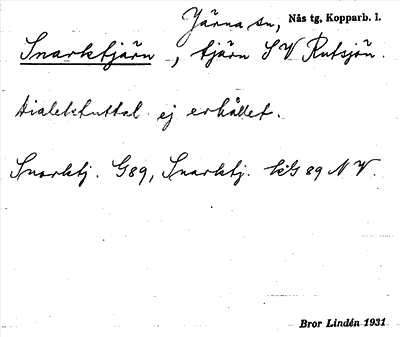 Järna sn, Nås tg, Kopparb. l.
Snarktjärn, tjärn S V Rutsjön.
Dialektuttal ej erhållet.
Snarktj. G89, Snarktj. kG 89 N V.
Bror Lindén 1931